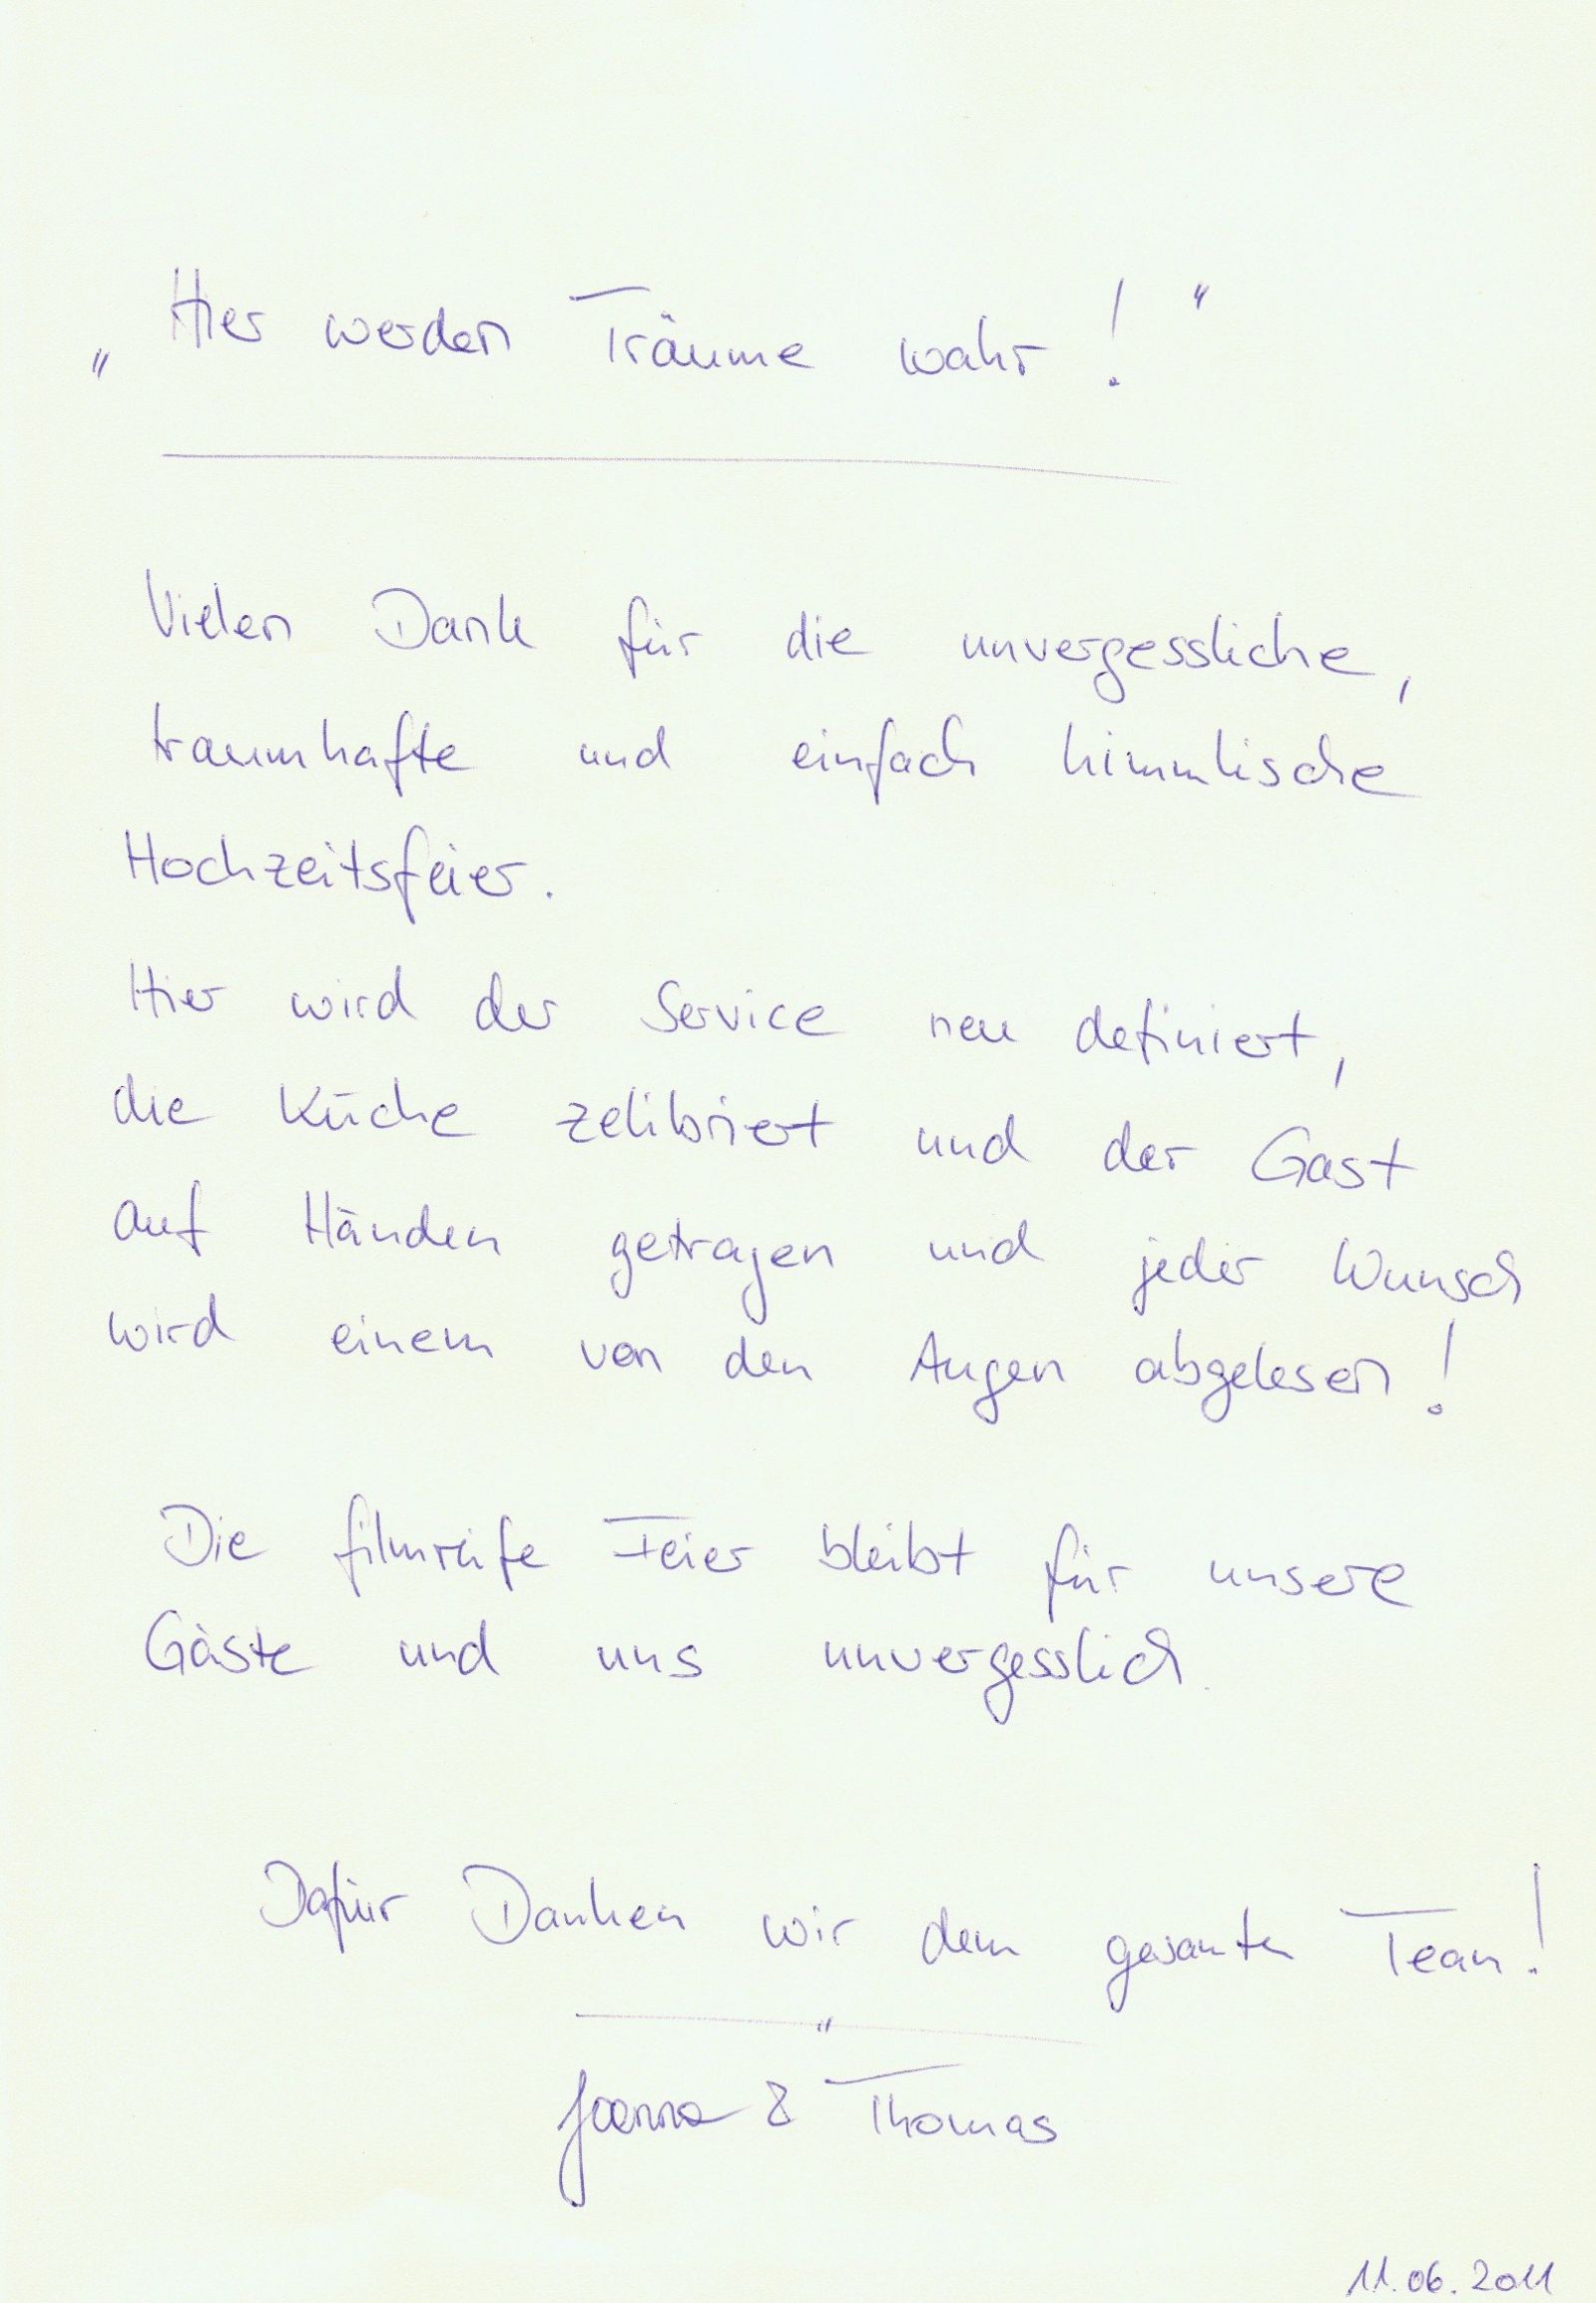 „Hier werden Träume wahr!"
Vielen Dank für die unvergessliche,
traumhafte und einfach himmlische
Hochzeitsfeier.
Hier wird der Service neu definiert,
die Küche zelibriert und der Gast
auf Händen getragen und jeder Wunsch
wird einem von den Augen abgelesen!
Die filmreife Feier bleibt für unsere
Gäste und uns unvergesslich.
Dafür Danken wir dem gesamten Team!
"
Joanna & Thomas
11.06.2011